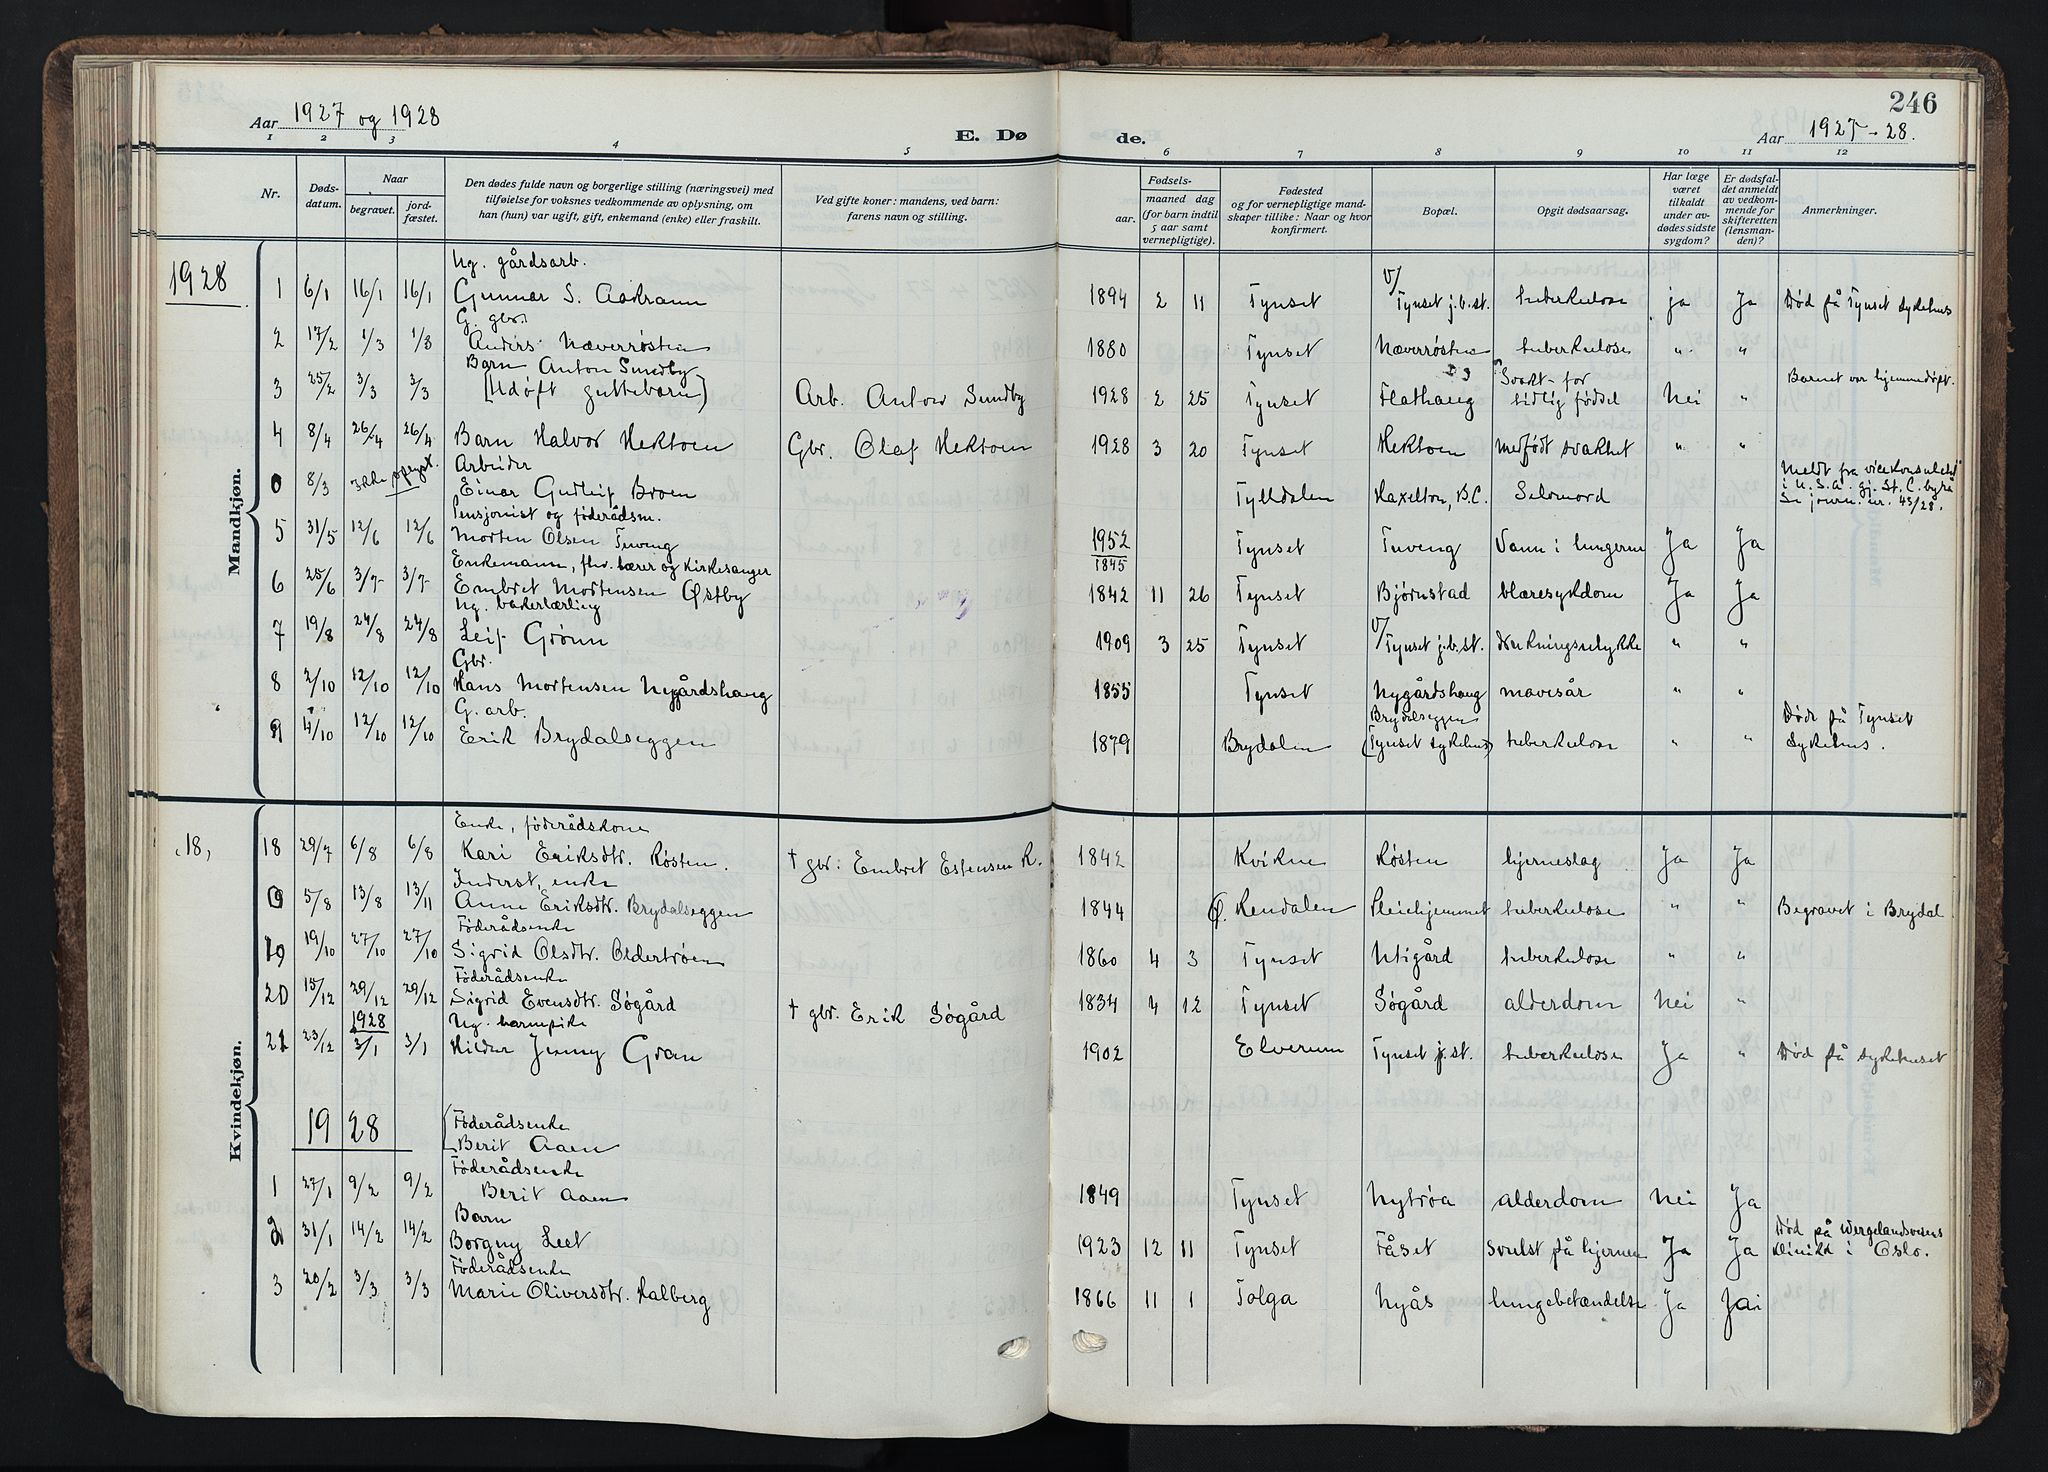 Aar 1927 og 1928
E. Dø
de.
246
Aar 1927-28.
1 2 3 4 5 6 7 8 9 10 11 12
Nr.
Dødsdatum.
Naar
begravet.
jordfæstet.
Den dødes fulde navn og borgerlige stilling (næringsvei) med
tilføielse for voksnes vedkommende av oplysning, om
han (hun) var ugift, gift, enkemand (enke) eller fraskilt.
Ved gifte koner: mandens, ved barn:
farens navn og stilling.
Fødsels-
aar. maaned dag
(for barn indtil
5 aar samt
vernepligtige).
Fødested
og for vernepligtige mand-
skaper tillike: Naar og hvor
konfirmert.
Bopæl.
Opgit dødsaarsag.
Har læge
været
tilkaldt
under av-
dødes sidste
sygdom?
Er dødsfal-
det anmeldt
av vedkom-
mende for
skifteretten
(lensman-
den)?
Anmerkninger.
Mandkjøn.
1928
Ug. gårdsarb.
1 6/1 16/1 16/1 Gunnar S. Aakrann 1894 2 11 Tynset V/ Tynset j.b.st. tuberkulose ja Ja Død på Tynset sykehus
G. gbr.
2 17/2 1/3 1/3 Anders Næverrøsten 1880 Tynset Næverrøsten tuberkulose " "
Barn Anton Sundby
3 25/2 3/3 3/3 [Udøpt guttebarn] Arb. Anton Sundby 1928 2 25 Tynset Flathaug Svakt - for tidlig fødsel Nei " Barnet var hjemmedøpt.
4 8/4 26/4 26/4 Barn Halvor Hektoen Gbr. Olaf Hektoen 1928 3 20 Tynset Hektoen medfødt svakhet " "
Arbeider
0 8/3 Ikke oplyst. Einar Gudleif Broen Tylldalen Haxelton, B.C. Selvmord Meldt fra vicekonsulatet i U.S.A. gj. St. C. byrå Se journ. nr. 43/28.
Pensjonist og føderådsm.
5 31/5 12/6 12/6 Morten Olsen Tuveng 1952 1845 Tynset Tuveng Vann i lungerne Ja Ja
Enkemann, fhv. lærer og kirkesanger
6 25/6 3/7 3/7 Embret Mortensen Østby 1842 11 26 Tynset Bjørnstad blæresykdom Ja Ja
Ug. bakerlærling
7 19/8 24/8 24/8 Leif Grønn 1909 3 25 Tynset V/ Tynset j.b.st. Drukningsulykke " "
Gbr.
8 2/10 12/10 12/10 Hans Mortensen Nygårdshaug 1855 Tynset Nygårdshaug mavesår " "
G. arb.
9 4/10 12/10 12/10 Erik Brydalseggen 1879 Brydalen Brydalseggen (Tynset sykehus) tuberkulose " " Døde på Tynset Sykehus.
Kvindekjøn.
18,
Enke, føderådskone
18 29/7 6/8 6/8 Kari Eriksdtr. Røsten. † gbr: Embret Estensen R. 1842 Kvikne Røsten hjerneslag Ja Ja
Inderst, enke
0 5/8 13/8 13/11 Anne Eriksdtr. Brydalseggen 1844 Ø. Rendalen Pleiehjemmet tuberkulose " " Begravet i Brydal
Føderådsenke
19 19/10 27/10 27/10 Sigrid Olsdtr. Oldertrøen 1860 4 3 Tynset Utigård tuberkulose " "
Føderådsenke
20 15/12 29/12 29/12 Sigrid Evensdtr. Søgård † gbr. Erik Søgård 1834 4 12 Tynset Søgård alderdom Nei "
1928 Ug. barnepike
21 23/12 3/1 3/1 Hildur Jenny Gran 1902 Elverum Tynset j.st. tuberkulose Ja " Død på sykehuset
1928
Føderådsenke
Berit Aaen
Føderådsenke
1 27/1 9/2 9/2 Berit Aaen 1849 Tynset Nytrøa alderdom Nei Ja
Barn
2 31/1 14/2 14/2 Borgny Leet 1923 12 11 Tynset Fåset svulst på hjernen Ja Ja Død på Wergelandsveiens klinikk i Oslo.
Føderådsenke
3 20/2 3/3 3/3 Marie Oliversdtr. Kalberg 1866 11 1 Tolga Nyås lungebetændelse Ja Ja